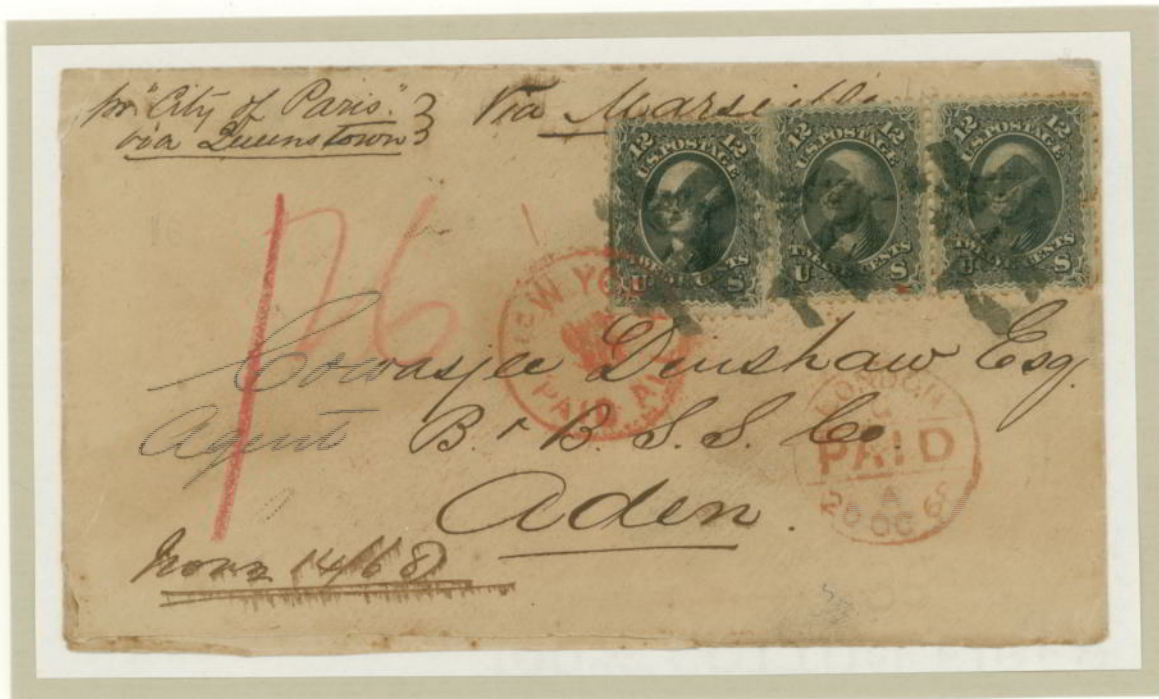 pr "City of Paris"
via Queenstown
Via Marseilles
12 12
U.S. POSTAGE
TWELVE CENTS
U S
12 12
U.S. POSTAGE
TWELVE CENTS
U S
12 12
U.S. POSTAGE
TWELVE CENTS
U S
26
NEW YORK
PAID ALL
Cowasjee Dinshaw Esq
Agent B & B. S. S. Co
Aden.
LONDON
PAID
A
20 OC 68
14/68